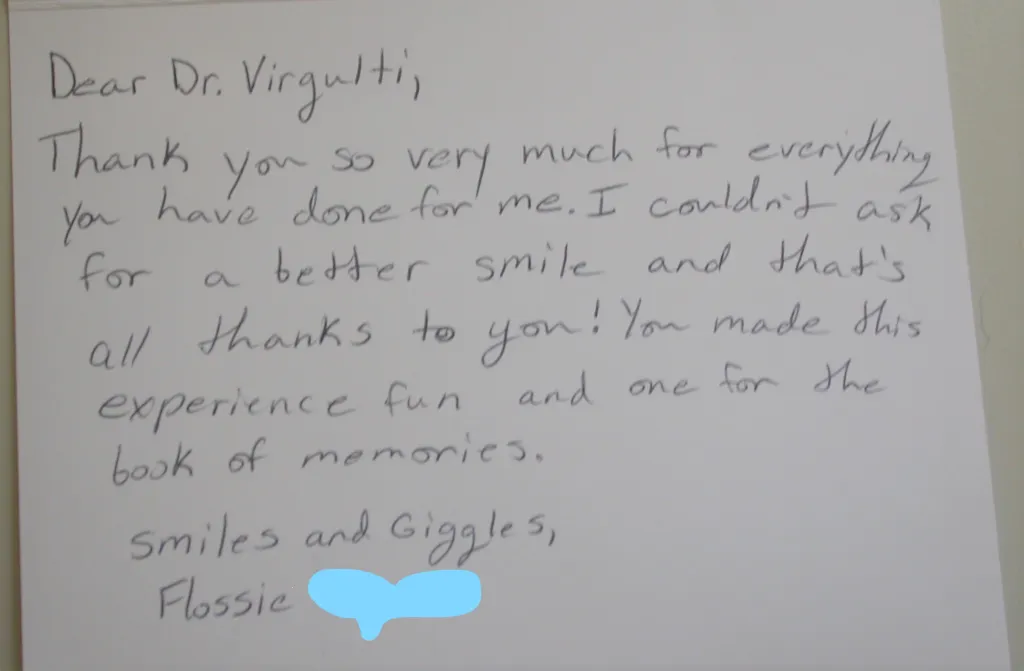 Dear Dr. Virgulti,
Thank you so very much for everything
you have done for me. I couldn't ask
for a better smile and that's
all thanks to you! You made this
experience fun and one for the
book of memories.
Smiles and Giggles,
Flossie